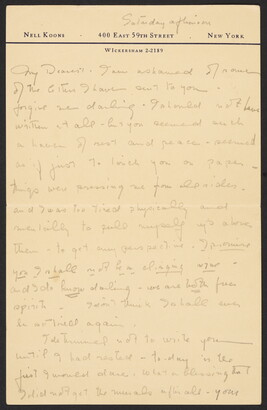 Saturday afternoon
NELL KOONS · 400 EAST 59TH STREET · NEW YORK
WICKERSHAM 2-2189
My Dearest - I am ashamed of
of the letters I have sent to you -
forgive me darling - I should not have
written at all - but you seemed such
a haven of rest and peace - seemed
as if just to touch you on paper -
things were pressing me from all sides -
and I was too tired physically and
mentally to pull myself up above
them - to get any perspective. I promise
you I shall not be a clinging vine -
and I do know darling - we are both free
spirits - I don't think I shall ever
be so tired again.
I determined not to write you
until I had rested - to-day is the
first I would dare. What a blessing that
I did not get the murals after all - your